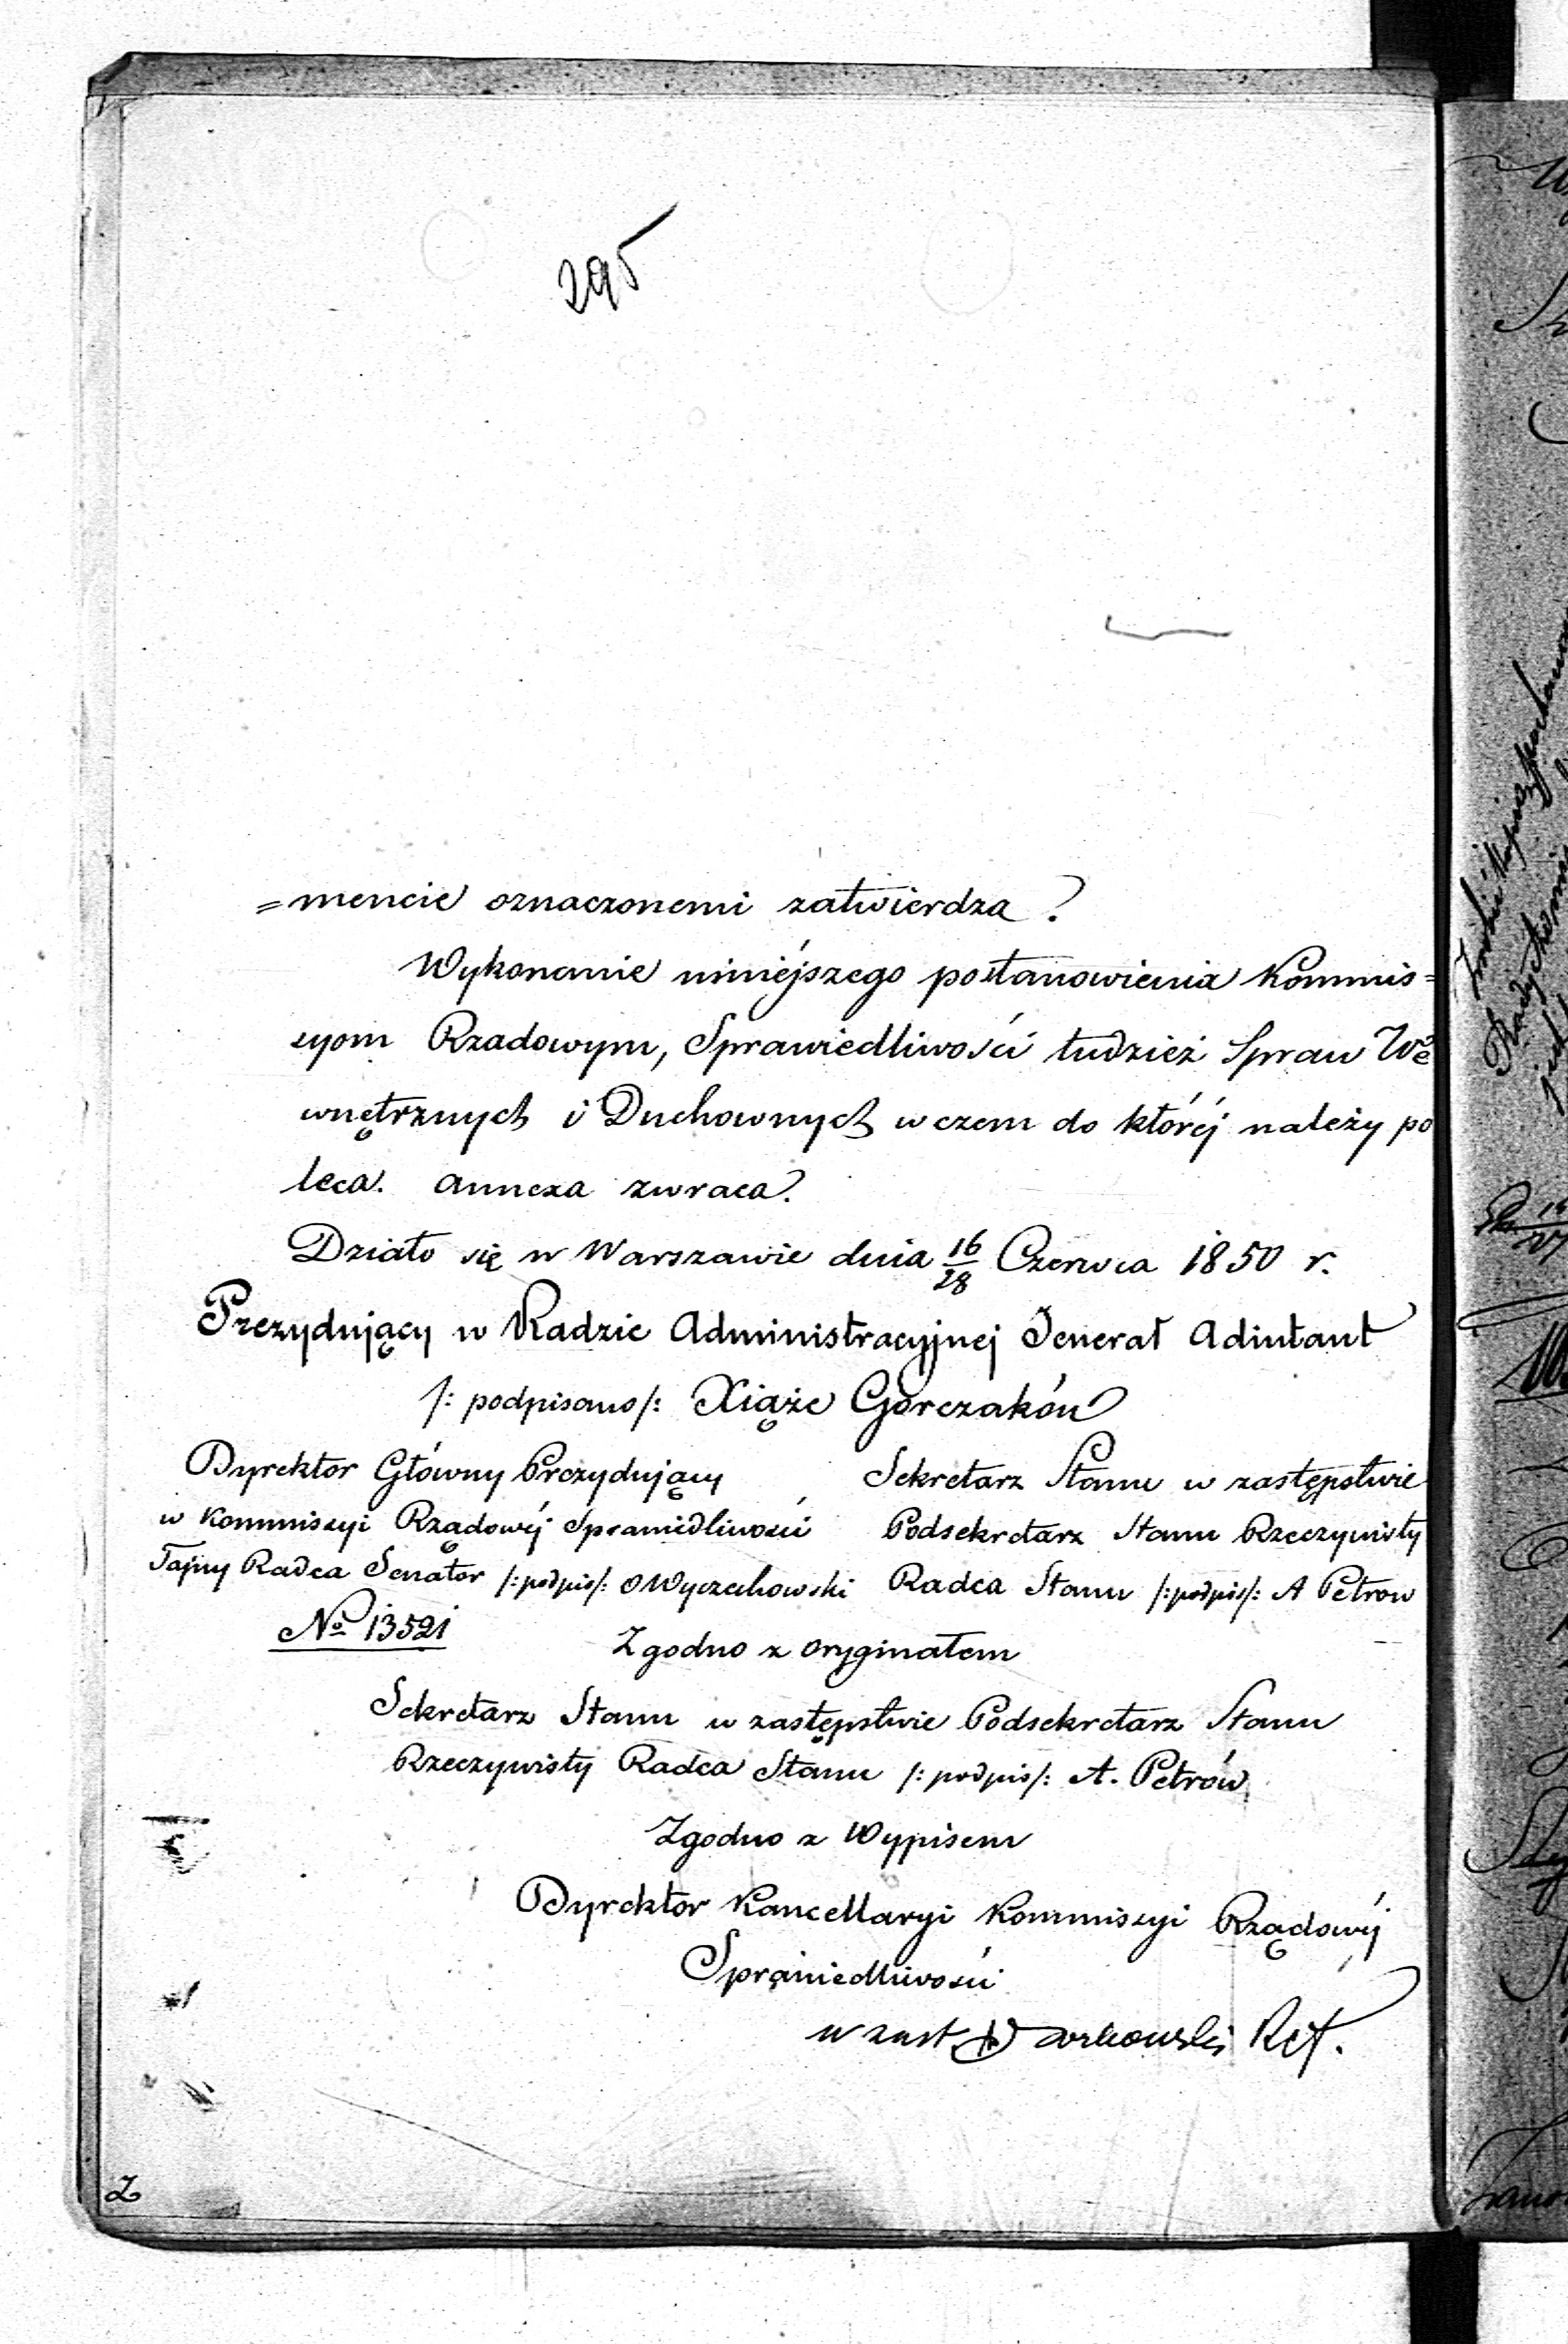 295
=mencie oznaczonemi zatwierdza
Wykonanie niniéjszego postanowienia Kommis=
syom Rządowym, Sprawiedliwości tudzież Spraw We
wnętrznych i Duchownych w czem do któréj należy po
leca. annexa zwraca.
Działo się w Warszawie dnia 16/28 Czerwca 1850 r.
Prezydujący w Radzie Administracyjnej Jenerał Adiutant
/: podpisano /: Xiąże Gorczaków
Dyrektor Główny Prezydujący
w Kommissyi Rządowéj Sprawiedliwości
Tajny Radca Senator /: podpis /: O Wyczechowski
Sekretarz Stanu w zastępstwie
Podsekretarz Stanu Rzeczywisty
Radca Stanu /: podpis /: A Petrow
No 13521
Zgodno z oryginałem
Sekretarz Stanu w zastępstwie Podsekretarz Stanu
Rzeczywisty Radca Stanu /: podpis /: A. Petrów
Zgodno z Wypisem
Dyrektor Kancellaryi Kommissyi Rządowéj
Sprawiedliwości
w zast. Ref.